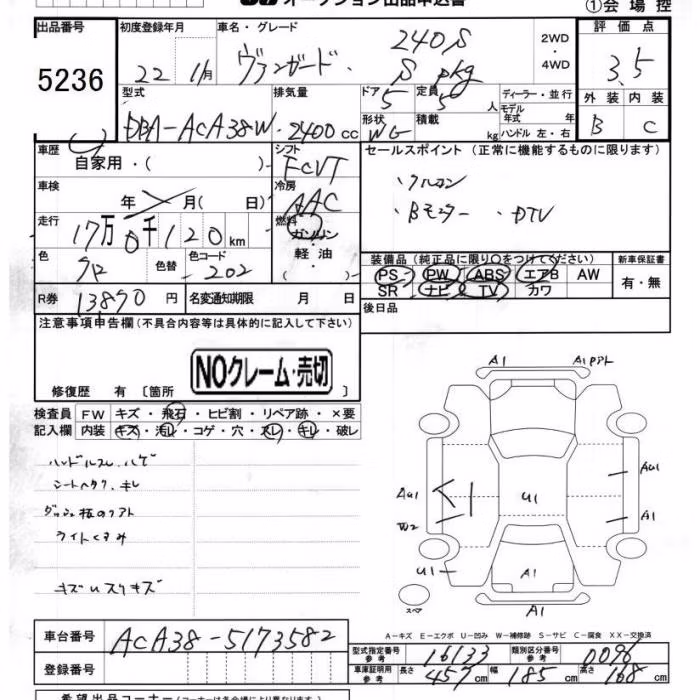 オークション出品申込書
①会場控
出品番号 初度登録年月 車名・グレード 評価点
5236 22 11月 ヴァンガード 240S S pkg 2WD・4WD 3.5
型式 排気量 ドア 定員 ディーラー・並行 外装 内装
DBA-ACA38W 2400cc 5 5人 モデル年式 年 B C
形状 WG 積載 kg ハンドル 左・右
車歴 シフト セールスポイント(正常に機能するものに限ります)
自家用・( ) FCVT
車検 年 月( 日) 冷房 AAC
・クルコン
・Bモニター ・DTV
走行 17万0千120km 燃料 ガソリン・軽油・( )
色 クロ 色替 色コード 202
装備品(純正品に限り○をつけてください) 新車保証書
PS PW ABS エアB AW 有・無
SR ナビ TV カワ
R券 13870円 名変通知期限 月 日 後日品
注意事項申告欄(不具合内容等は具体的に記入して下さい)
NOクレーム・売切
修復歴 有〔箇所 〕
検査員 FW キズ・飛石・ヒビ割・リペア跡・×要
記入欄 内装 キズ・汚レ・コゲ・穴・スレ・キレ・破レ
ハンドルスレ、ハゲ
シートヘタク、キレ
ダッシュ板のリアト
ライトくすみ
キズUスリキズ
A1 A1
AU1 AU1
U1
W2 A1
U1 A1
スペア
A1
A-キズ E-エクボ U-凹み W-補修跡 S-サビ C-腐食 X-要交換 XX-交換済
車台番号 ACA38-5173582
型式指定番号 参考 16133 類別区分番号 参考 0096
登録番号
車庫証明用 参考 長さ 457cm 幅 185cm 高さ 168cm
希望出品コーナー